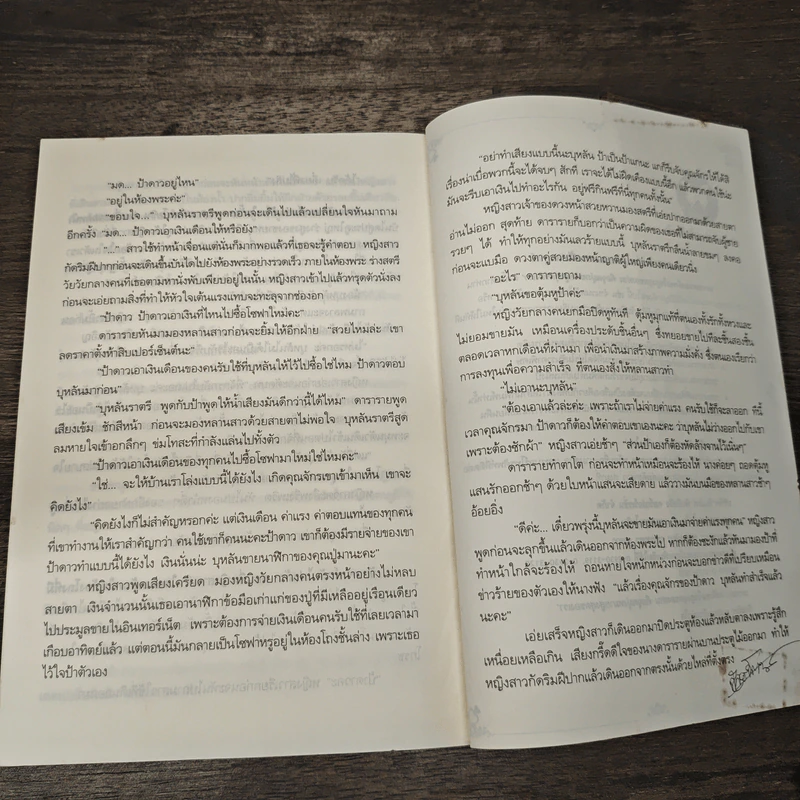 "มด... ป้าดาวอยู่ไหน"
"อยู่ในห้องพระค่ะ"
"ขอบใจ..." บุหลันราตรีพูดก่อนจะเดินไปแล้วเปลี่ยนใจหันมาถาม
อีกครั้ง "มด... ป้าดาวเอาเงินเดือนให้หรือยัง"
"..." สาวใช้ทำหน้าเจื่อนแต่นั่นก็มากพอแล้วที่เธอจะรู้คำตอบ หญิงสาว
กัดริมฝีปากก่อนจะเดินขึ้นบันไดไปยังห้องพระอย่างรวดเร็ว ภายในห้องพระ ร่างสตรี
วัยวัยกลางคนที่เธอตามหานั่งพับเพียบอยู่ในนั้น หญิงสาวเข้าไปแล้วทรุดตัวนั่งลง
ก่อนจะเอ่ยถามสิ่งที่ทำให้หัวใจเต้นแรงแทบจะทะลุจากช่องอก
"ป้าดาว ป้าดาวเอาเงินที่ไหนไปซื้อโซฟาใหม่คะ"
ดารารายหันมามองหลานสาวก่อนจะยิ้มให้อีกฝ่าย "สวยไหมล่ะ เขา
ลดราคาตั้งห้าสิบเปอร์เซ็นต์นะ"
"ป้าดาวเอาเงินเดือนของคนรับใช้ที่บุหลันให้ไว้ไปซื้อใช่ไหม ป้าดาวตอบ
บุหลันมาก่อน"
"บุหลันราตรี พูดกับป้าพูดให้น้ำเสียงมันดีกว่านี้ได้ไหม" ดารารายพูด
เสียงเข้ม ชักสีหน้า ก่อนจะมองหลานสาวด้วยสายตาไม่พอใจ บุหลันราตรีสูด
ลมหายใจเข้าอกลึกๆ ข่มโทสะที่กำลังแล่นไปทั้งตัว
"ป้าดาวเอาเงินเดือนของทุกคนไปซื้อโซฟามาใหม่ใช่ไหมคะ"
"ใช่... จะให้บ้านเราโล่งแบบนี้ได้ยังไง เกิดคุณจักรเขาเข้ามาเห็น เขาจะ
คิดยังไง"
"คิดยังไงก็ไม่สำคัญหรอกค่ะ แต่เงินเดือน ค่าแรง ค่าตอบแทนของทุกคน
ที่เขาทำงานให้เราสำคัญกว่า คนใช้เขาก็คนนะคะป้าดาว เขาก็ต้องมีรายจ่ายของเขา
ป้าดาวทำแบบนี้ได้ยังไง เงินนั่นน่ะ บุหลันขายนาฬิกาของคุณปู่มานะคะ"
หญิงสาวพูดเสียงเครียด มองหญิงวัยกลางคนตรงหน้าอย่างไม่หลบ
สายตา เงินจำนวนนั้นเธอเอานาฬิกาข้อมือเก่าแก่ของปู่ที่มีเหลืออยู่เรือนเดียว
ไปประมูลขายในอินเทอร์เน็ต เพราะต้องการจ่ายเงินเดือนคนรับใช้ที่เลยเวลามา
เกือบอาทิตย์แล้ว แต่ตอนนี้มันกลายเป็นโซฟาหรูอยู่ในห้องโถงชั้นล่าง เพราะเธอ
ไว้ใจป้าตัวเอง
"อย่าทำเสียงแบบนี้นะบุหลัน ป้าเป็นป้าแกนะ แกก็รีบจับคุณจักรให้ได้สิ
เรื่องน่าเบื่อพวกนี้จะได้จบๆ สักที เราจะได้ไม่ฝืดเคืองแบบนี้อีก แล้วพวกคนใช้น่ะ
มันจะรีบเอาเงินไปทำอะไรกัน อยู่ฟรีกินฟรีที่นี่ทุกคนทั้งนั้น"
หญิงสาวเจ้าของดวงหน้าสวยหวานมองสตรีที่เอ่ยปากออกมาด้วยสายตา
อ่านไม่ออก สุดท้าย ดารารายก็บอกว่าเป็นความผิดของเธอที่ไม่สามารถจับผู้ชาย
รวยๆ ได้ ทำให้ทุกอย่างมันเลวร้ายแบบนี้ บุหลันราตรีกลืนน้ำลายขมๆ ลงคอ
ก่อนจะแบมือ ดวงตาคู่สวยมองหน้าญาติผู้ใหญ่เพียงคนเดียวนิ่ง
"อะไร" ดารารายถาม
"บุหลันขอตุ้มหูป้าค่ะ"
หญิงวัยกลางคนยกมือปิดหูทันที ตุ้มหูมุกแท้ที่ตนเองทั้งรักทั้งหวงและ
ไม่ยอมขายมัน เหมือนเครื่องประดับชิ้นอื่นๆ ซึ่งทยอยขายไปทีละชิ้นสองชิ้น
ตลอดเวลาหกเดือนที่ผ่านมา เพื่อนำเงินมาสร้างภาพความมั่งคั่ง ซึ่งตนเองเรียกว่า
การลงทุนเพื่อความสำเร็จ ที่ตนเองสั่งให้หลานสาวทำ
"ไม่เอานะบุหลัน"
"ต้องเอาแล้วล่ะค่ะ เพราะถ้าเราไม่จ่ายค่าแรง คนรับใช้ก็จะลาออก ทีนี้
เวลาคุณจักรมา ป้าดาวก็ต้องให้คำตอบเขาเองนะคะ ว่าบุหลันไม่ว่างออกไปกับเขา
เพราะต้องซักผ้า" หญิงสาวเอ่ยช้าๆ "ส่วนป้าเองก็ต้องหัดล้างจานไว้เนิ่นๆ"
ดารารายทำตาโต ก่อนจะทำหน้าเหมือนจะร้องไห้ นางค่อยๆ ถอดตุ้มหู
แสนรักออกช้าๆ ด้วยใบหน้าแสนจะเสียดาย แล้ววางมันบนมือของหลานสาวช้าๆ
อ้อยอิ่ง
"ดีค่ะ... เดี๋ยวพรุ่งนี้บุหลันจะขายมันเอาเงินมาจ่ายค่าแรงทุกคน" หญิงสาว
พูดก่อนจะลุกขึ้นแล้วเดินออกจากห้องพระไป หากก็ต้องชะงักแล้วหันมามองป้าที่
ทำหน้าใกล้จะร้องไห้ ถอนหายใจหนักหน่วงก่อนจะบอกข่าวดีที่เปรียบเหมือน
ข่าวร้ายของตัวเองให้นางฟัง "แล้วเรื่องคุณจักรของป้าดาว บุหลันทำสำเร็จแล้ว
นะคะ"
เอ่ยเสร็จหญิงสาวก็เดินออกมาปิดประตูห้องแล้วหลับตาลงเพราะรู้สึก
เหนื่อยเหลือเกิน เสียงกรี๊ดดีใจของนางดารารายผ่านบานประตูไม้ออกมา ทำให้
หญิงสาวกัดริมฝีปากแล้วเดินออกจากตรงนั้นด้วยไหล่ที่ตั้งตรง